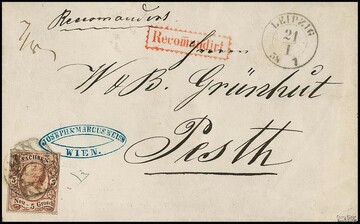 Recomandirt
Recomandirt
LEIPZIG
21
I
Herrn
W & B. Grünhut
Pesth
JOSEPH & MARCUS WEISS
WIEN.
SACHSEN
Neu- 5 Grosch